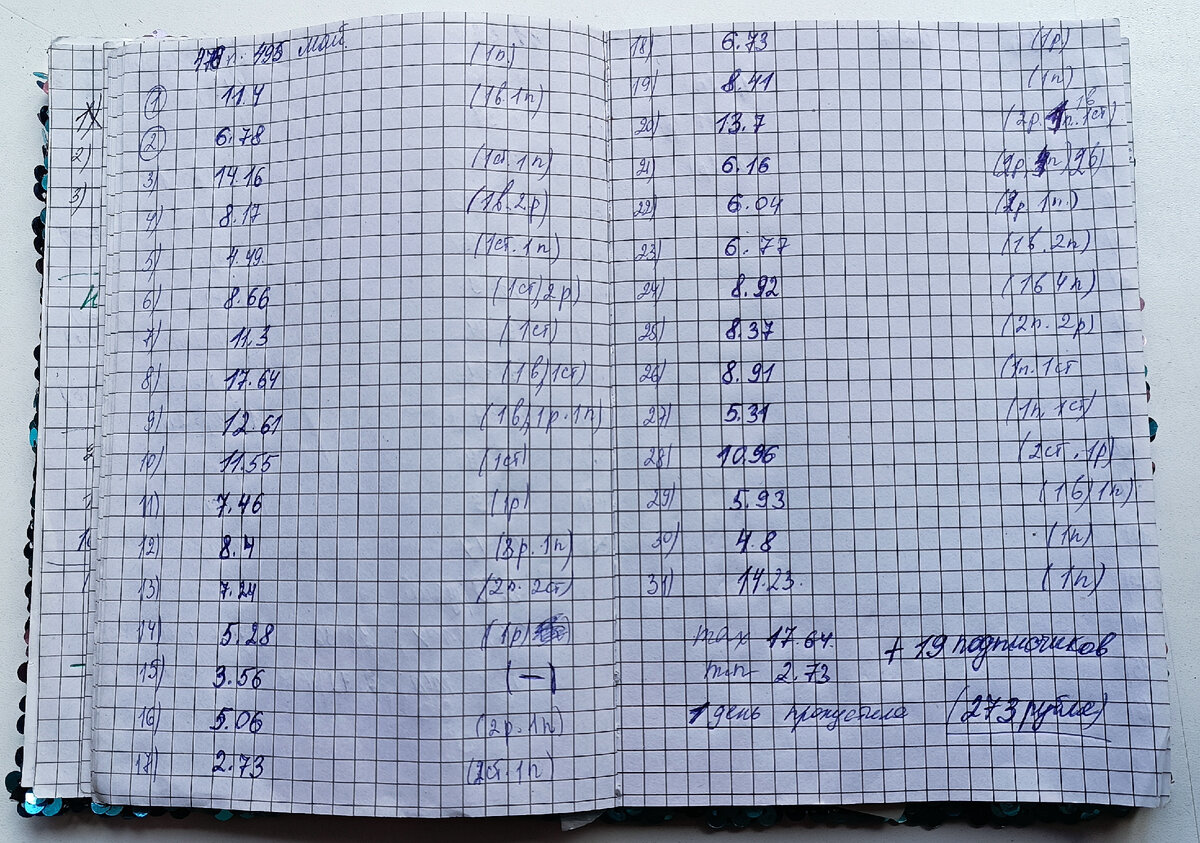 п. 495 Май (1п)
1 11.4 (1в.1п)
2 6.78
3) 14.16 (1ст.1п)
4) 8.17 (1в.2р)
5) 4.49. (1ст.1п)
6) 8.66 (1ст,2р)
7) 11.3 (1ст)
8) 17.64 (1в,1ст)
9) 12.61 (1в,1р.1п)
10) 11.55 (1ст)
11) 7.46 (1р)
12) 8.4 (3р.1п)
13) 7.24 (2п.2ст)
14) 5.28 (1р)
15) 3.56 (—)
16) 5.06 (2р.1п)
17) 2.73 (2ст.1п)
18) 6.73 (1р)
19) 8.41 (1п)
20) 13.7 (2р. 1п. 1в 1ст)
21) 6.16 (2р, 1п) 2в)
22) 6.04 (2р.1п.)
23) 6.77 (1в.2п)
24) 8.92 (1в 4п)
25) 8.37 (2п.2р)
26) 8.91 (1п.1ст
27) 5.31 (1п, 1ст)
28) 10.96 (2ст.1р)
29) 5.93 (1в)(1п)
30) 4.8 (1п)
31) 14.23. (1п)
max 17.64. + 19 подписчиков
min 2.73
1 день пропустила (273 рубля)
1)
2)
3)